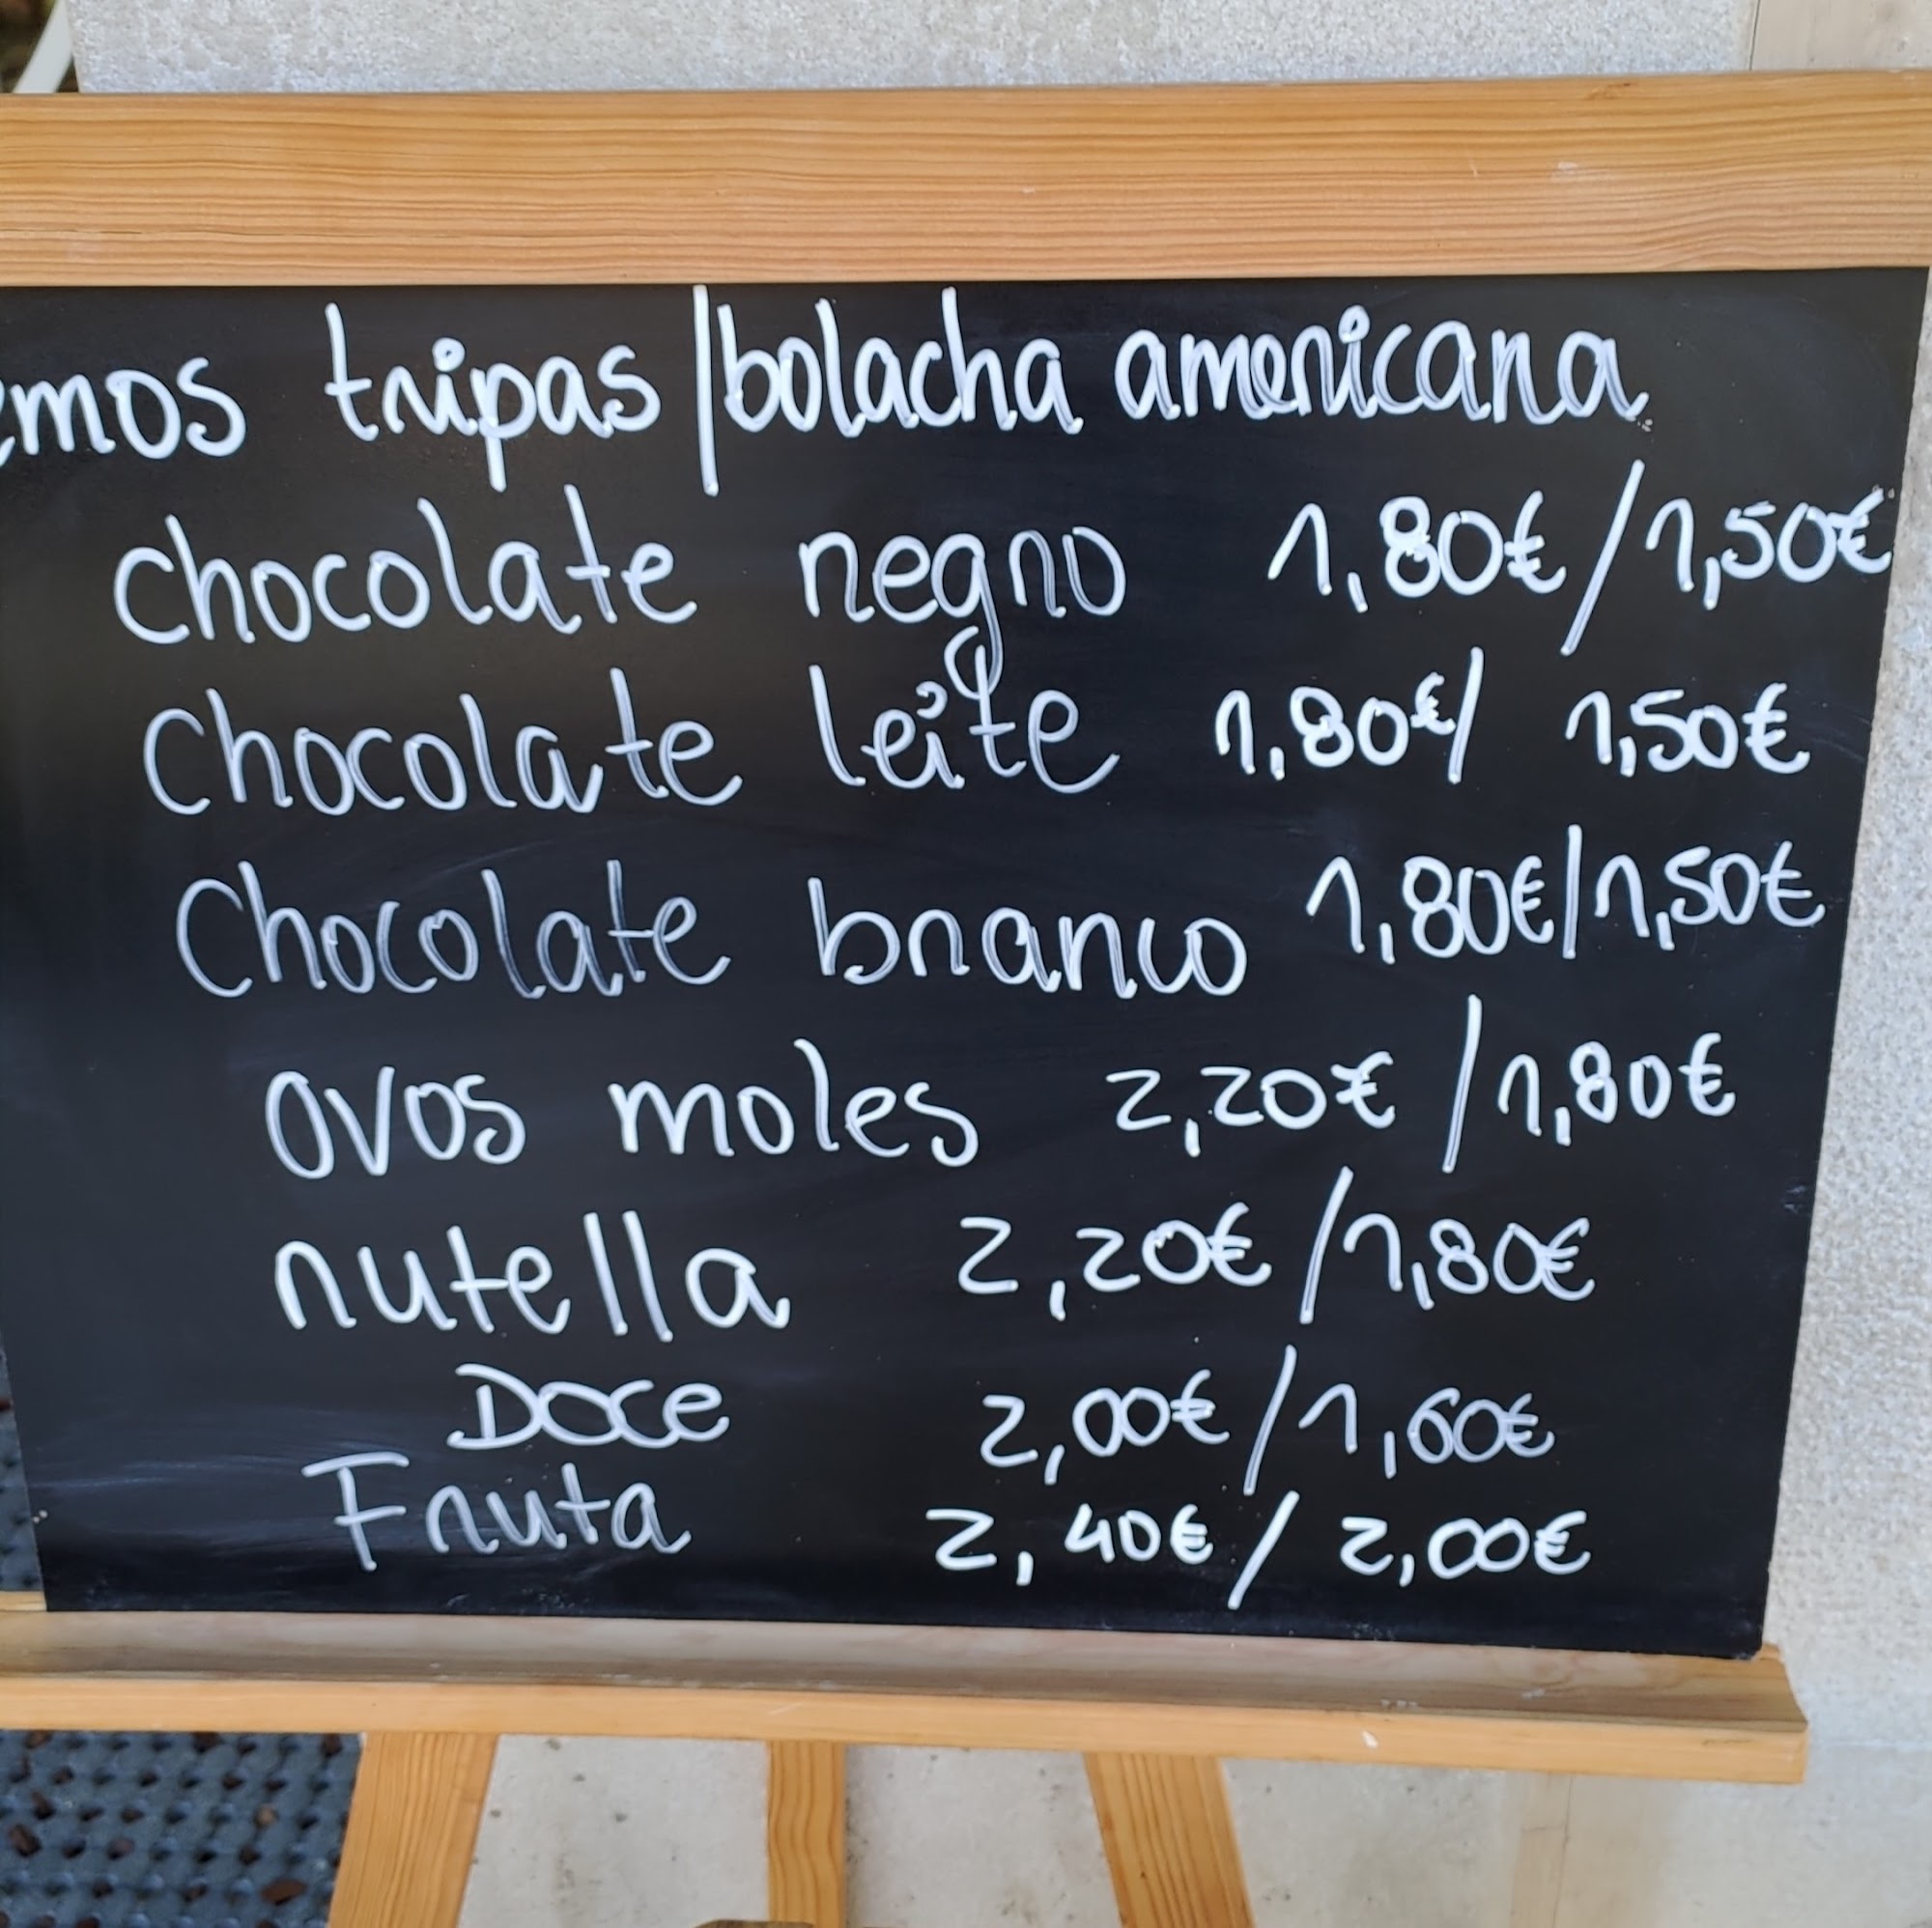 emos tripas/bolacha americana
chocolate negro 1,80€/1,50€
chocolate leite 1,80€/ 1,50€
Chocolate branco 1,80€/1,50€
ovos moles 2,20€/1,80€
nutella 2,20€/1,80€
Doce 2,00€/1,60€
Fruta 2,40€/2,00€